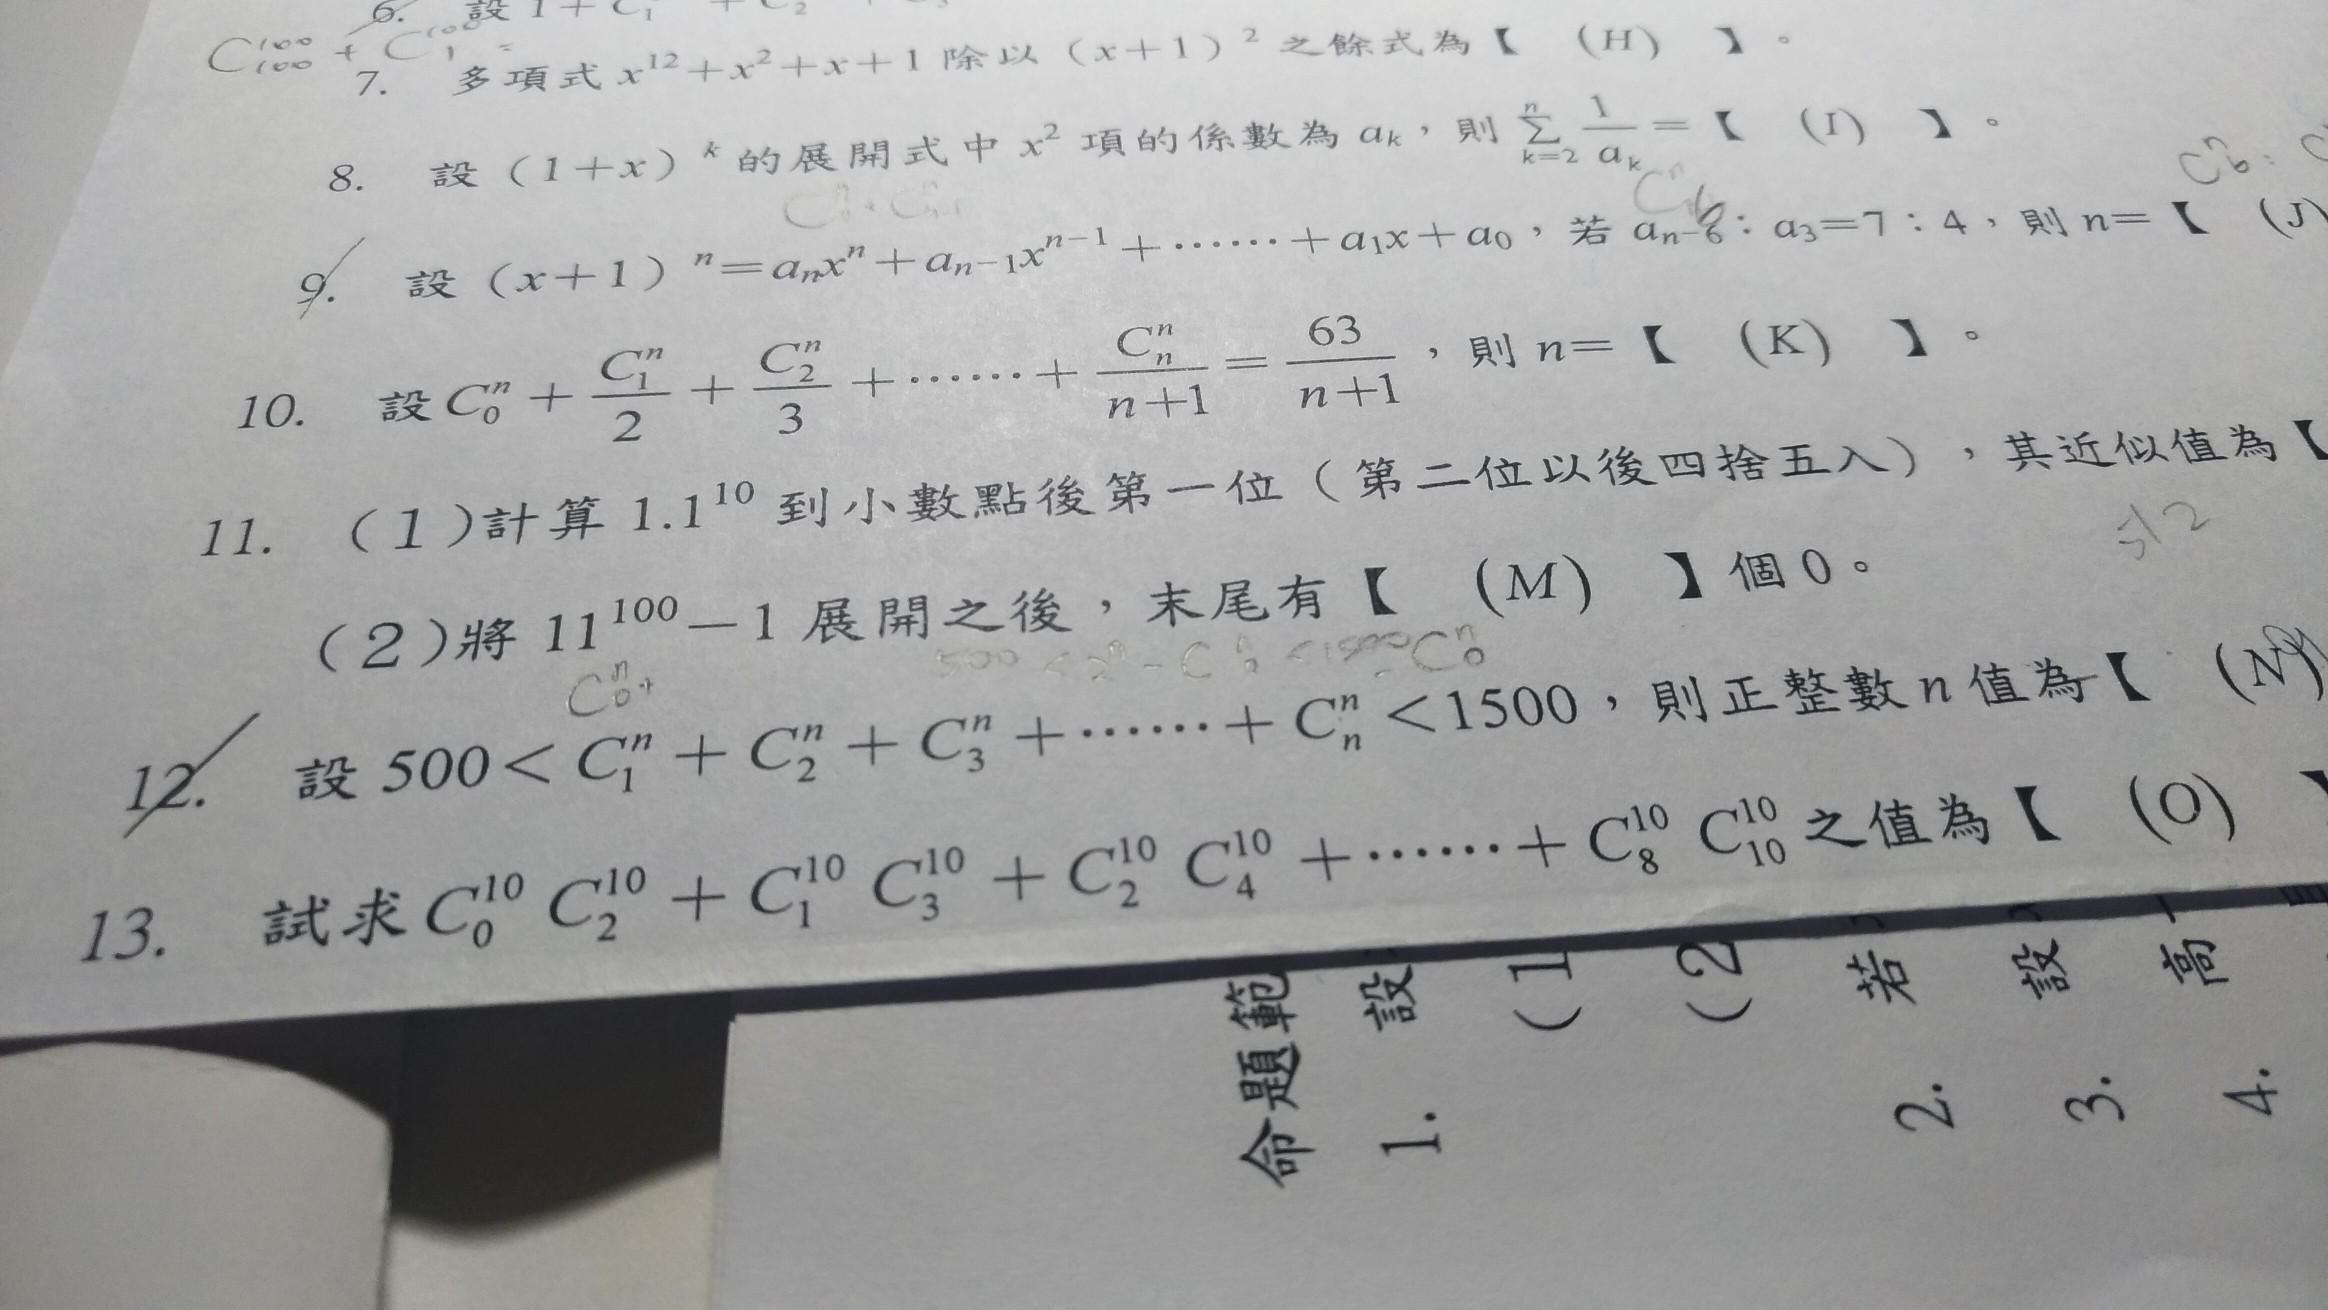 6. 設 1 + C₁ + C₂
C¹⁰⁰₁₀₀ + C¹⁰⁰₁ =
7. 多項式 x¹²+x²+x+1 除以（x+1）² 之餘式為【 (H) 】。
8. 設（1+x）ᵏ 的展開式中 x² 項的係數為 aₖ，則 Σ_{k=2}^{n} 1/aₖ =【 (I) 】。
9. 設（x+1）ⁿ=aₙxⁿ+aₙ₋₁xⁿ⁻¹+……+a₁x+a₀，若 aₙ₋₆：a₃=7：4，則 n=【 (J)
10. 設 C₀ⁿ + C₁ⁿ/2 + C₂ⁿ/3 +……+ Cₙⁿ/(n+1) = 63/(n+1)，則 n=【 (K) 】。
11. (1)計算 1.1¹⁰ 到小數點後第一位（第二位以後四捨五入），其近似值為【
512
(2)將 11¹⁰⁰－1 展開之後，末尾有【 (M) 】個 0。
C₀ⁿ+
12. 設 500 < C₁ⁿ + C₂ⁿ + C₃ⁿ +……+ Cₙⁿ <1500，則正整數 n 值為【 (N)
13. 試求 C₀¹⁰ C₂¹⁰ + C₁¹⁰ C₃¹⁰ + C₂¹⁰ C₄¹⁰ +……+ C₈¹⁰ C₁₀¹⁰ 之值為【 (O) 】
命題範
1. 設
(1
(2
2. 若
3. 設
4. 高